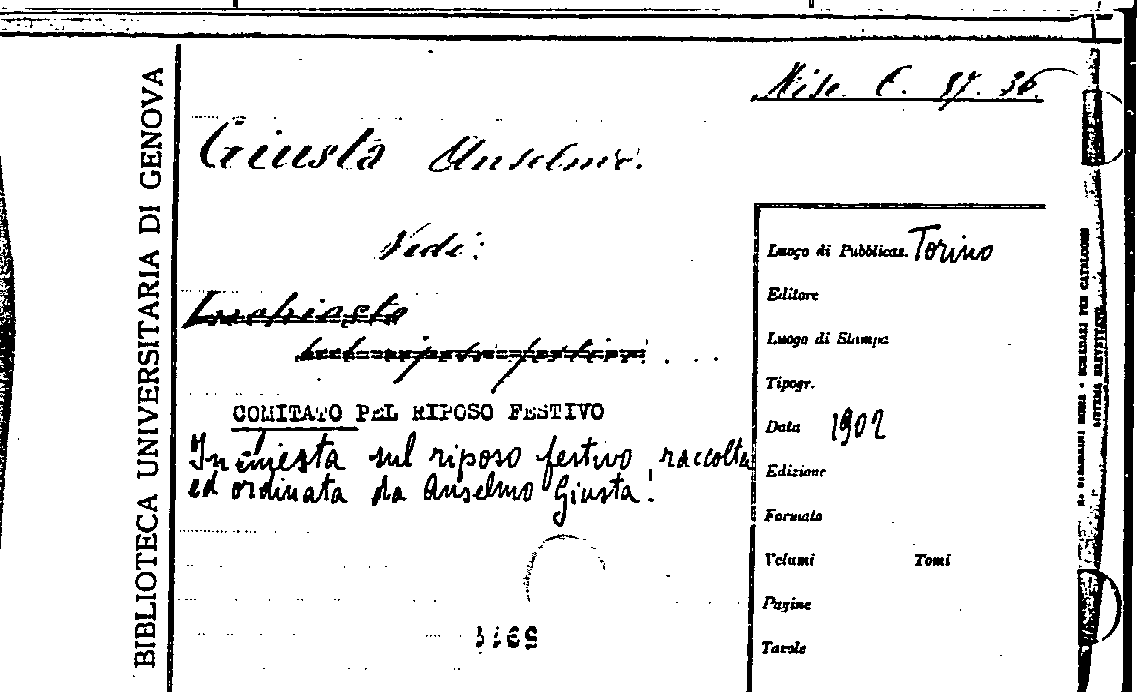 BIBLIOTECA UNIVERSITARIA DI GENOVA
Misc. C. 37. 36
Giusta Anselmo.
Vedi:
Inchiesta
sul riposo festivo
COMITATO PEL RIPOSO FESTIVO
Inchiesta sul riposo festivo, raccolta
ed ordinata da Anselmo Giusta.
Luogo di Pubblicaz. Torino
Editore
Luogo di Stampa
Tipogr.
Data 1902
Edizione
Formato
Volumi Tomi
Pagine
Tavole